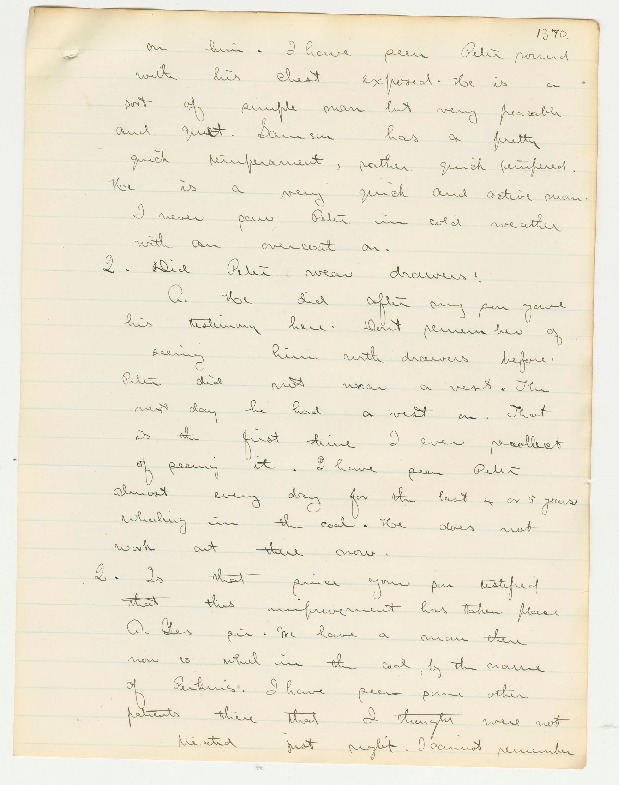 1370
on him. I have seen Peter round
with his chest exposed. He is a
sort of simple man but very peacable
and quiet. Samson has a pretty
quick temperament, rather quick tempered.
He is a very quick and active man.
I never saw Peter in cold weather
with an overcoat on.
Q. Did Peter wear drawers?
A. He did after my son gave
his testimony here. Don't remember of
seeing him with drawers before.
Peter did not wear a vest. The
next day he had a vest on. That
is the first time I ever recollect
of seeing it. I have seen Peter
almost every day for the last 4 or 5 years
wheeling in the coal. He does not
work out there now.
Q. Is that since your son testified
that this improvement has taken place
A. Yes sir. We have a man there
now to wheel in the coal, by the name
of Perkins. I have seen some other
patients there that I thought were not
treated just right. I cannot remember